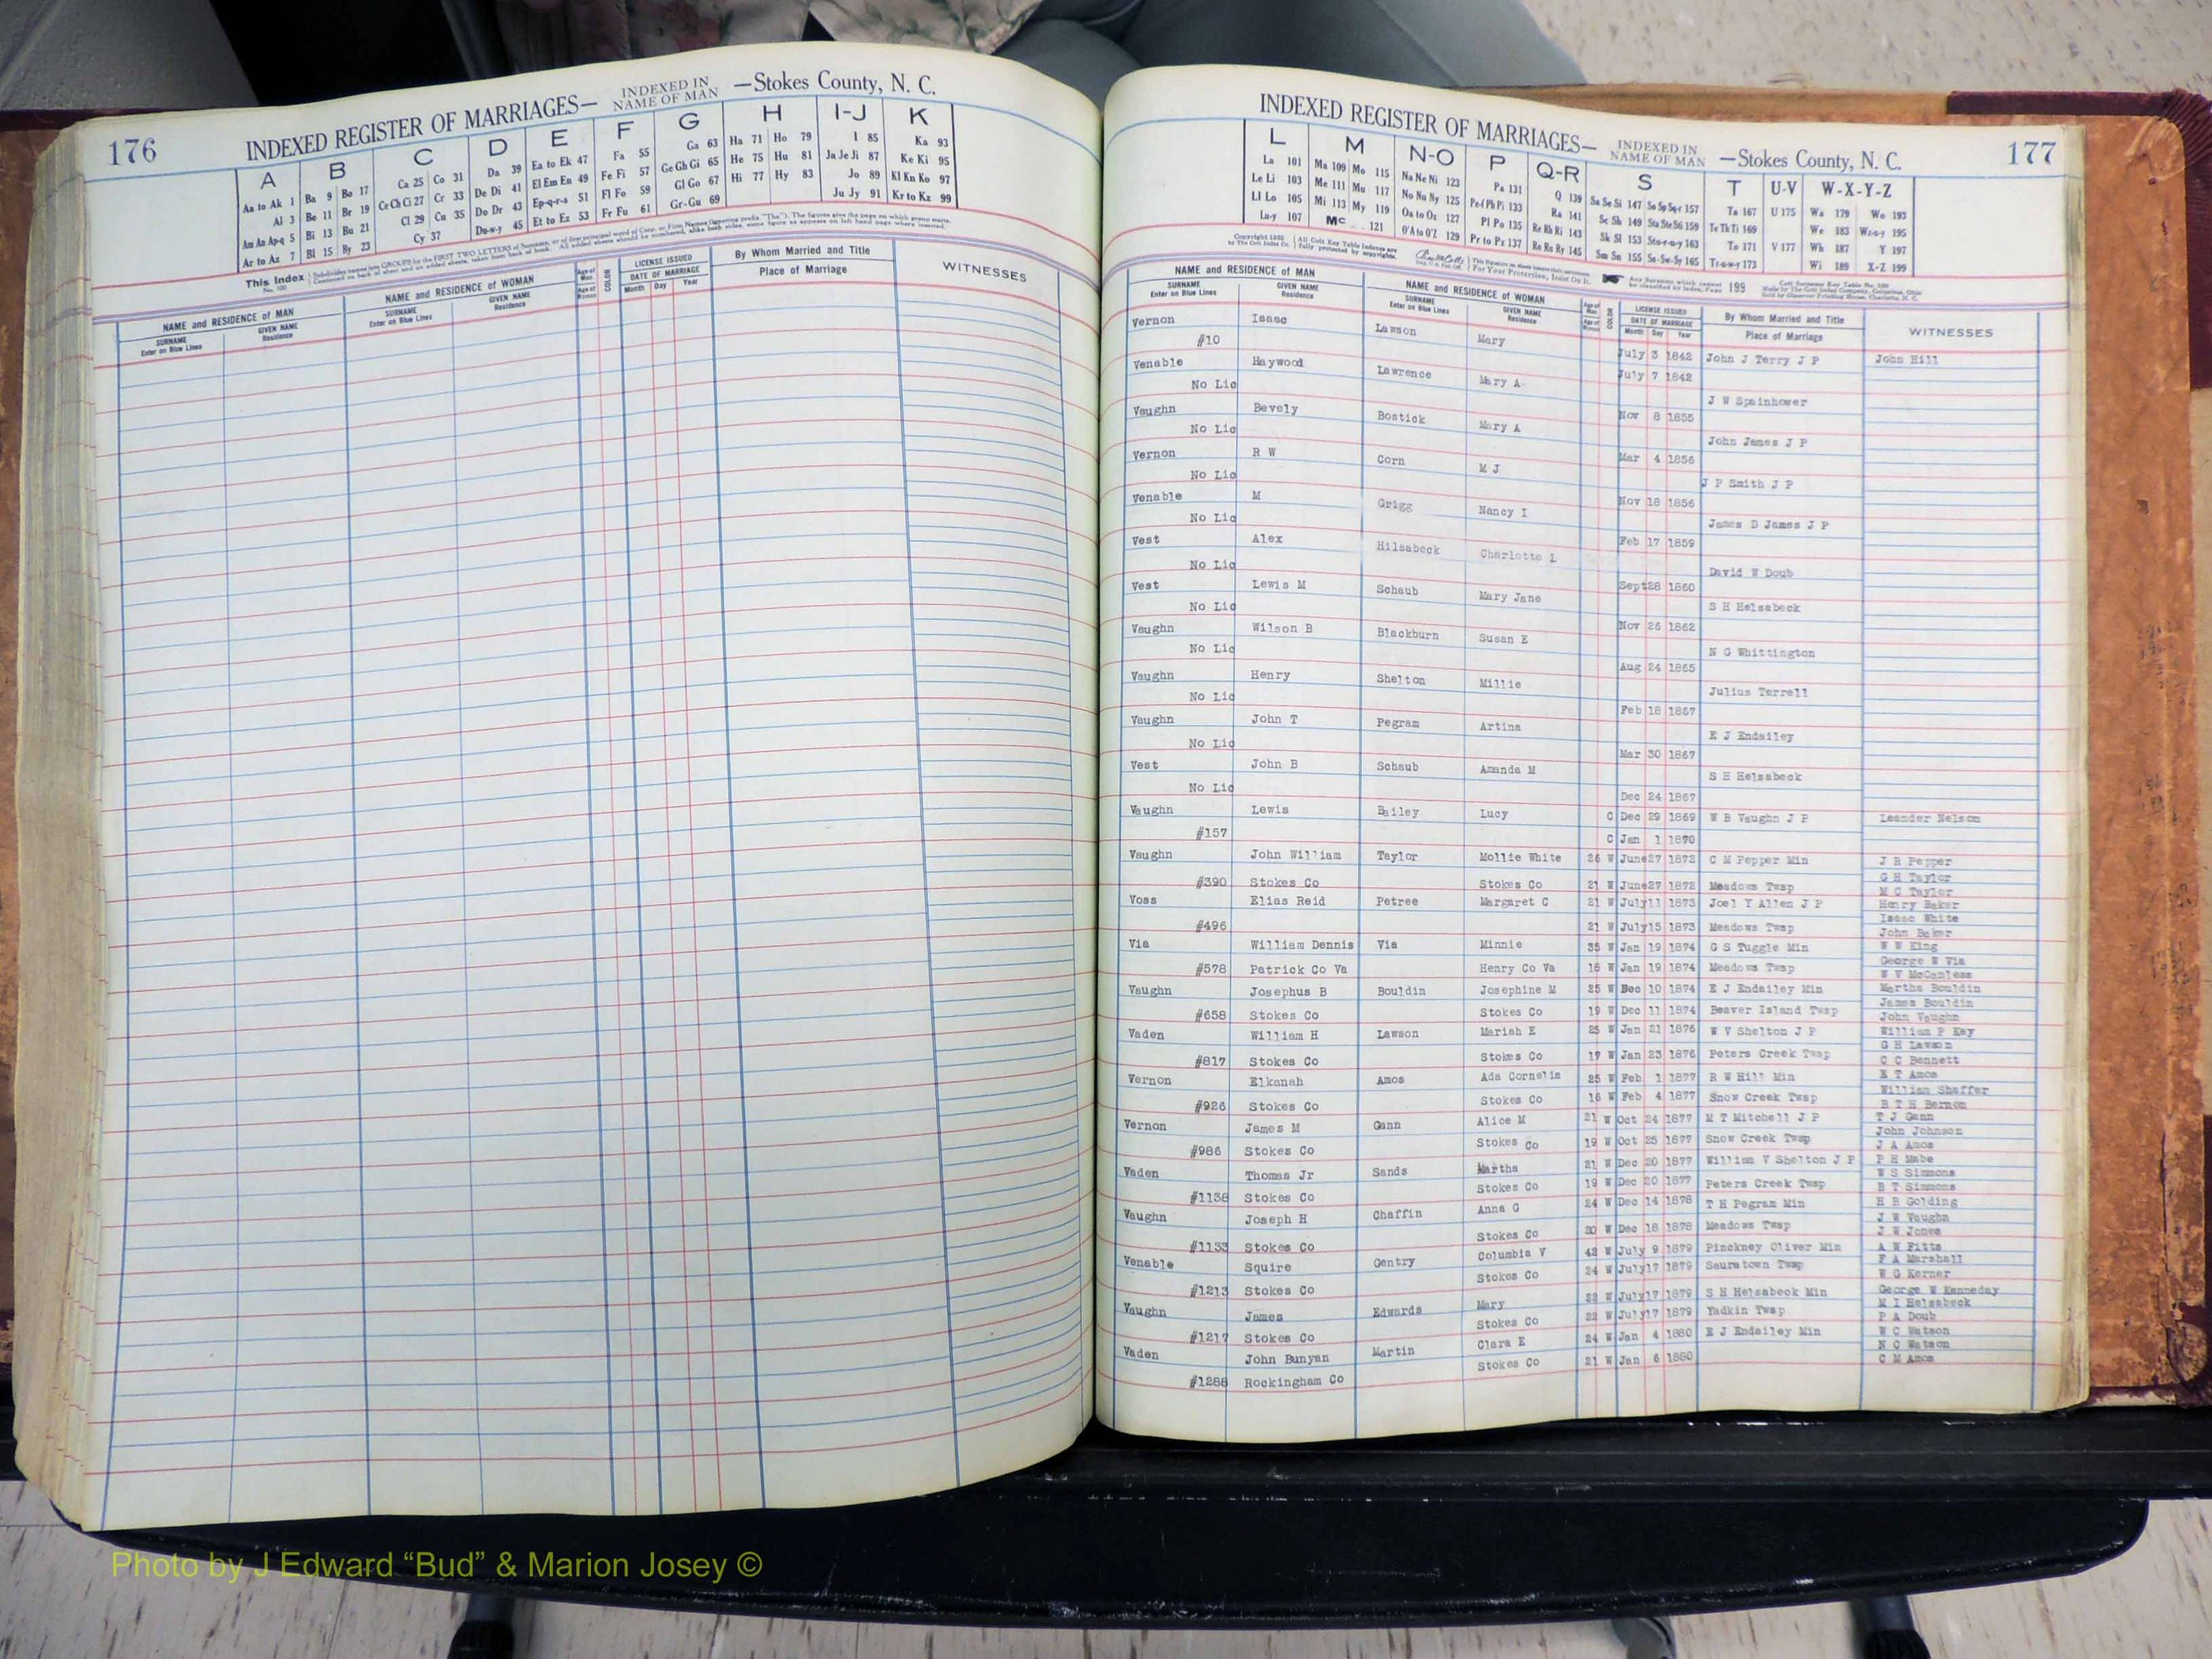 176
INDEXED REGISTER OF MARRIAGES— INDEXED IN NAME OF MAN —Stokes County, N. C.
A B C D E F G H I-J K
Aa to Ak 1 Ba 9 Bo 17 Ca 25 Co 31 Da 39 Ea to Ek 47 Fa 55 Ga 63 Ha 71 Ho 79 I 85 Ka 93
Al 3 Be 11 Br 19 Ce Ch Ci 27 Cr 33 De Di 41 El Em En 49 Fe Fi 57 Ge Gh Gi 65 He 75 Hu 81 Ja Je Ji 87 Ke Ki 95
Am An Ap-q 5 Bi 13 Bu 21 Cl 29 Cu 35 Do Dr 43 Ep-q-r-s 51 Fl Fo 59 Gl Go 67 Hi 77 Hy 83 Jo 89 Kl Kn Ko 97
Ar to Az 7 Bl 15 By 23 Cy 37 Du-w-y 45 Et to Ez 53 Fr Fu 61 Gr-Gu 69 Ju Jy 91 Kr to Kz 99
This Index
NAME and RESIDENCE OF MAN NAME and RESIDENCE OF WOMAN Age of Man Age of Woman COLOR LICENSE ISSUED DATE OF MARRIAGE By Whom Married and Title WITNESSES
SURNAME Enter on Blue Lines GIVEN NAME Residence SURNAME Enter on Blue Lines GIVEN NAME Residence Month Day Year Place of Marriage
INDEXED REGISTER OF MARRIAGES— INDEXED IN NAME OF MAN —Stokes County, N. C. 177
L M N-O P Q-R S T U-V W-X-Y-Z
La 101 Ma 109 Mo 115 Na Ne Ni 123 Pa 131 Q 139 Sa Se Si 147 So Sp Sq-r 157 Ta 167 U 175 Wa 179 Wo 193
Le Li 103 Me 111 Mu 117 No Nu Ny 125 Pe-f Ph Pi 133 Ra 141 Sc Sh 149 Sta Ste Sti 159 Te Th Ti 169 We 183 Wr-u-y 195
Ll Lo 105 Mi 113 My 119 Oa to Oz 127 Pl Po 135 Re Rh Ri 143 Sk Sl 153 Sto-r-u-y 163 To 171 V 177 Wh 187 Y 197
Lu-y 107 Mc 121 O'A to O'Z 129 Pr to Pz 137 Ro Ru Ry 145 Sm Sn 155 Su-Sw-Sy 165 Tr-u-w-y 173 Wi 189 X-Z 199
NAME and RESIDENCE OF MAN NAME and RESIDENCE OF WOMAN Age of Man Age of Woman COLOR LICENSE ISSUED DATE OF MARRIAGE By Whom Married and Title WITNESSES
SURNAME Enter on Blue Lines GIVEN NAME Residence SURNAME Enter on Blue Lines GIVEN NAME Residence Month Day Year Place of Marriage
Vernon Isaac Lawson Mary July 3 1842 John J Terry J P John Hill
#10 July 7 1842
Venable Haywood Lawrence Mary A J W Spainhower
No Lic Nov 8 1855
Vaughn Bevely Bostick Mary A John James J P
No Lic Mar 4 1856
Vernon R W Corn M J J P Smith J P
No Lic Nov 18 1856
Venable M Grigg Nancy I James D James J P
No Lic Feb 17 1859
Vest Alex Hilsabeck Charlotte L David W Doub
No Lic Sept 28 1860
Vest Lewis M Schaub Mary Jane S H Helsabeck
No Lic Nov 26 1862
Vaughn Wilson B Blackburn Susan E N G Whittington
No Lic Aug 24 1865
Vaughn Henry Shelton Millie Julius Terrell
No Lic Feb 18 1867
Vaughn John T Pegram Artina E J Endailey
No Lic Mar 30 1867
Vest John B Schaub Amanda M S H Helsabeck
No Lic Dec 24 1867
Vaughn Lewis Bailey Lucy C Dec 29 1869 W B Vaughn J P Leander Nelson
#157 C Jan 1 1870
Vaughn John William Taylor Mollie White 26 W June 27 1872 C M Pepper Min J R Pepper
G H Taylor
#390 Stokes Co Stokes Co 21 W June 27 1872 Meadows Twsp M C Taylor
Voss Elias Reid Petree Margaret C 21 W July 11 1873 Joel Y Allen J P Henry Baker
Isaac White
#496 21 W July 15 1873 Meadows Twsp John Baker
Via William Dennis Via Minnie 35 W Jan 19 1874 G S Tuggle Min W W King
George W Via
#578 Patrick Co Va Henry Co Va 18 W Jan 19 1874 Meadows Twsp W V McCanless
Vaughn Josephus B Bouldin Josephine M 25 W Dec 10 1874 E J Endailey Min Martha Bouldin
James Bouldin
#658 Stokes Co Stokes Co 19 W Dec 11 1874 Beaver Island Twsp John Vaughn
Vaden William H Lawson Mariah E 25 W Jan 21 1876 W V Shelton J P William P Key
G H Lawson
#817 Stokes Co Stokes Co 17 W Jan 23 1876 Peters Creek Twsp C C Bennett
Vernon Elkanah Amos Ada Cornelia 25 W Feb 1 1877 R W Hill Min E T Amos
William Shaffer
#926 Stokes Co Stokes Co 16 W Feb 4 1877 Snow Creek Twsp B T H Bernon
Vernon James M Gann Alice M 21 W Oct 24 1877 M T Mitchell J P T J Gann
John Johnson
#986 Stokes Co Stokes Co 19 W Oct 25 1877 Snow Creek Twsp J A Amos
Vaden Thomas Jr Sands Martha 21 W Dec 20 1877 William V Shelton J P P H Mabe
W S Simmons
#1138 Stokes Co Stokes Co 19 W Dec 20 1877 Peters Creek Twsp B T Simmons
Vaughn Joseph H Chaffin Anna G 24 W Dec 14 1878 T H Pegram Min H B Golding
J W Vaughn
#1133 Stokes Co Stokes Co 20 W Dec 18 1878 Meadows Twsp J W Jones
Venable Squire Gentry Columbia V 42 W July 9 1879 Pinckney Oliver Min A W Fitts
F A Marshall
#1213 Stokes Co Stokes Co 24 W July 17 1879 Sauratown Twsp W G Kerner
Vaughn James Edwards Mary 23 W July 17 1879 S H Helsabeck Min George W Kanneday
M I Helsabeck
#1217 Stokes Co Stokes Co 22 W July 17 1879 Yadkin Twsp P A Doub
Vaden John Bunyan Martin Clara E 24 W Jan 4 1880 E J Endailey Min W C Watson
N C Watson
#1288 Rockingham Co Stokes Co 21 W Jan 6 1880 C M Amos
Photo by J Edward “Bud” & Marion Josey ©